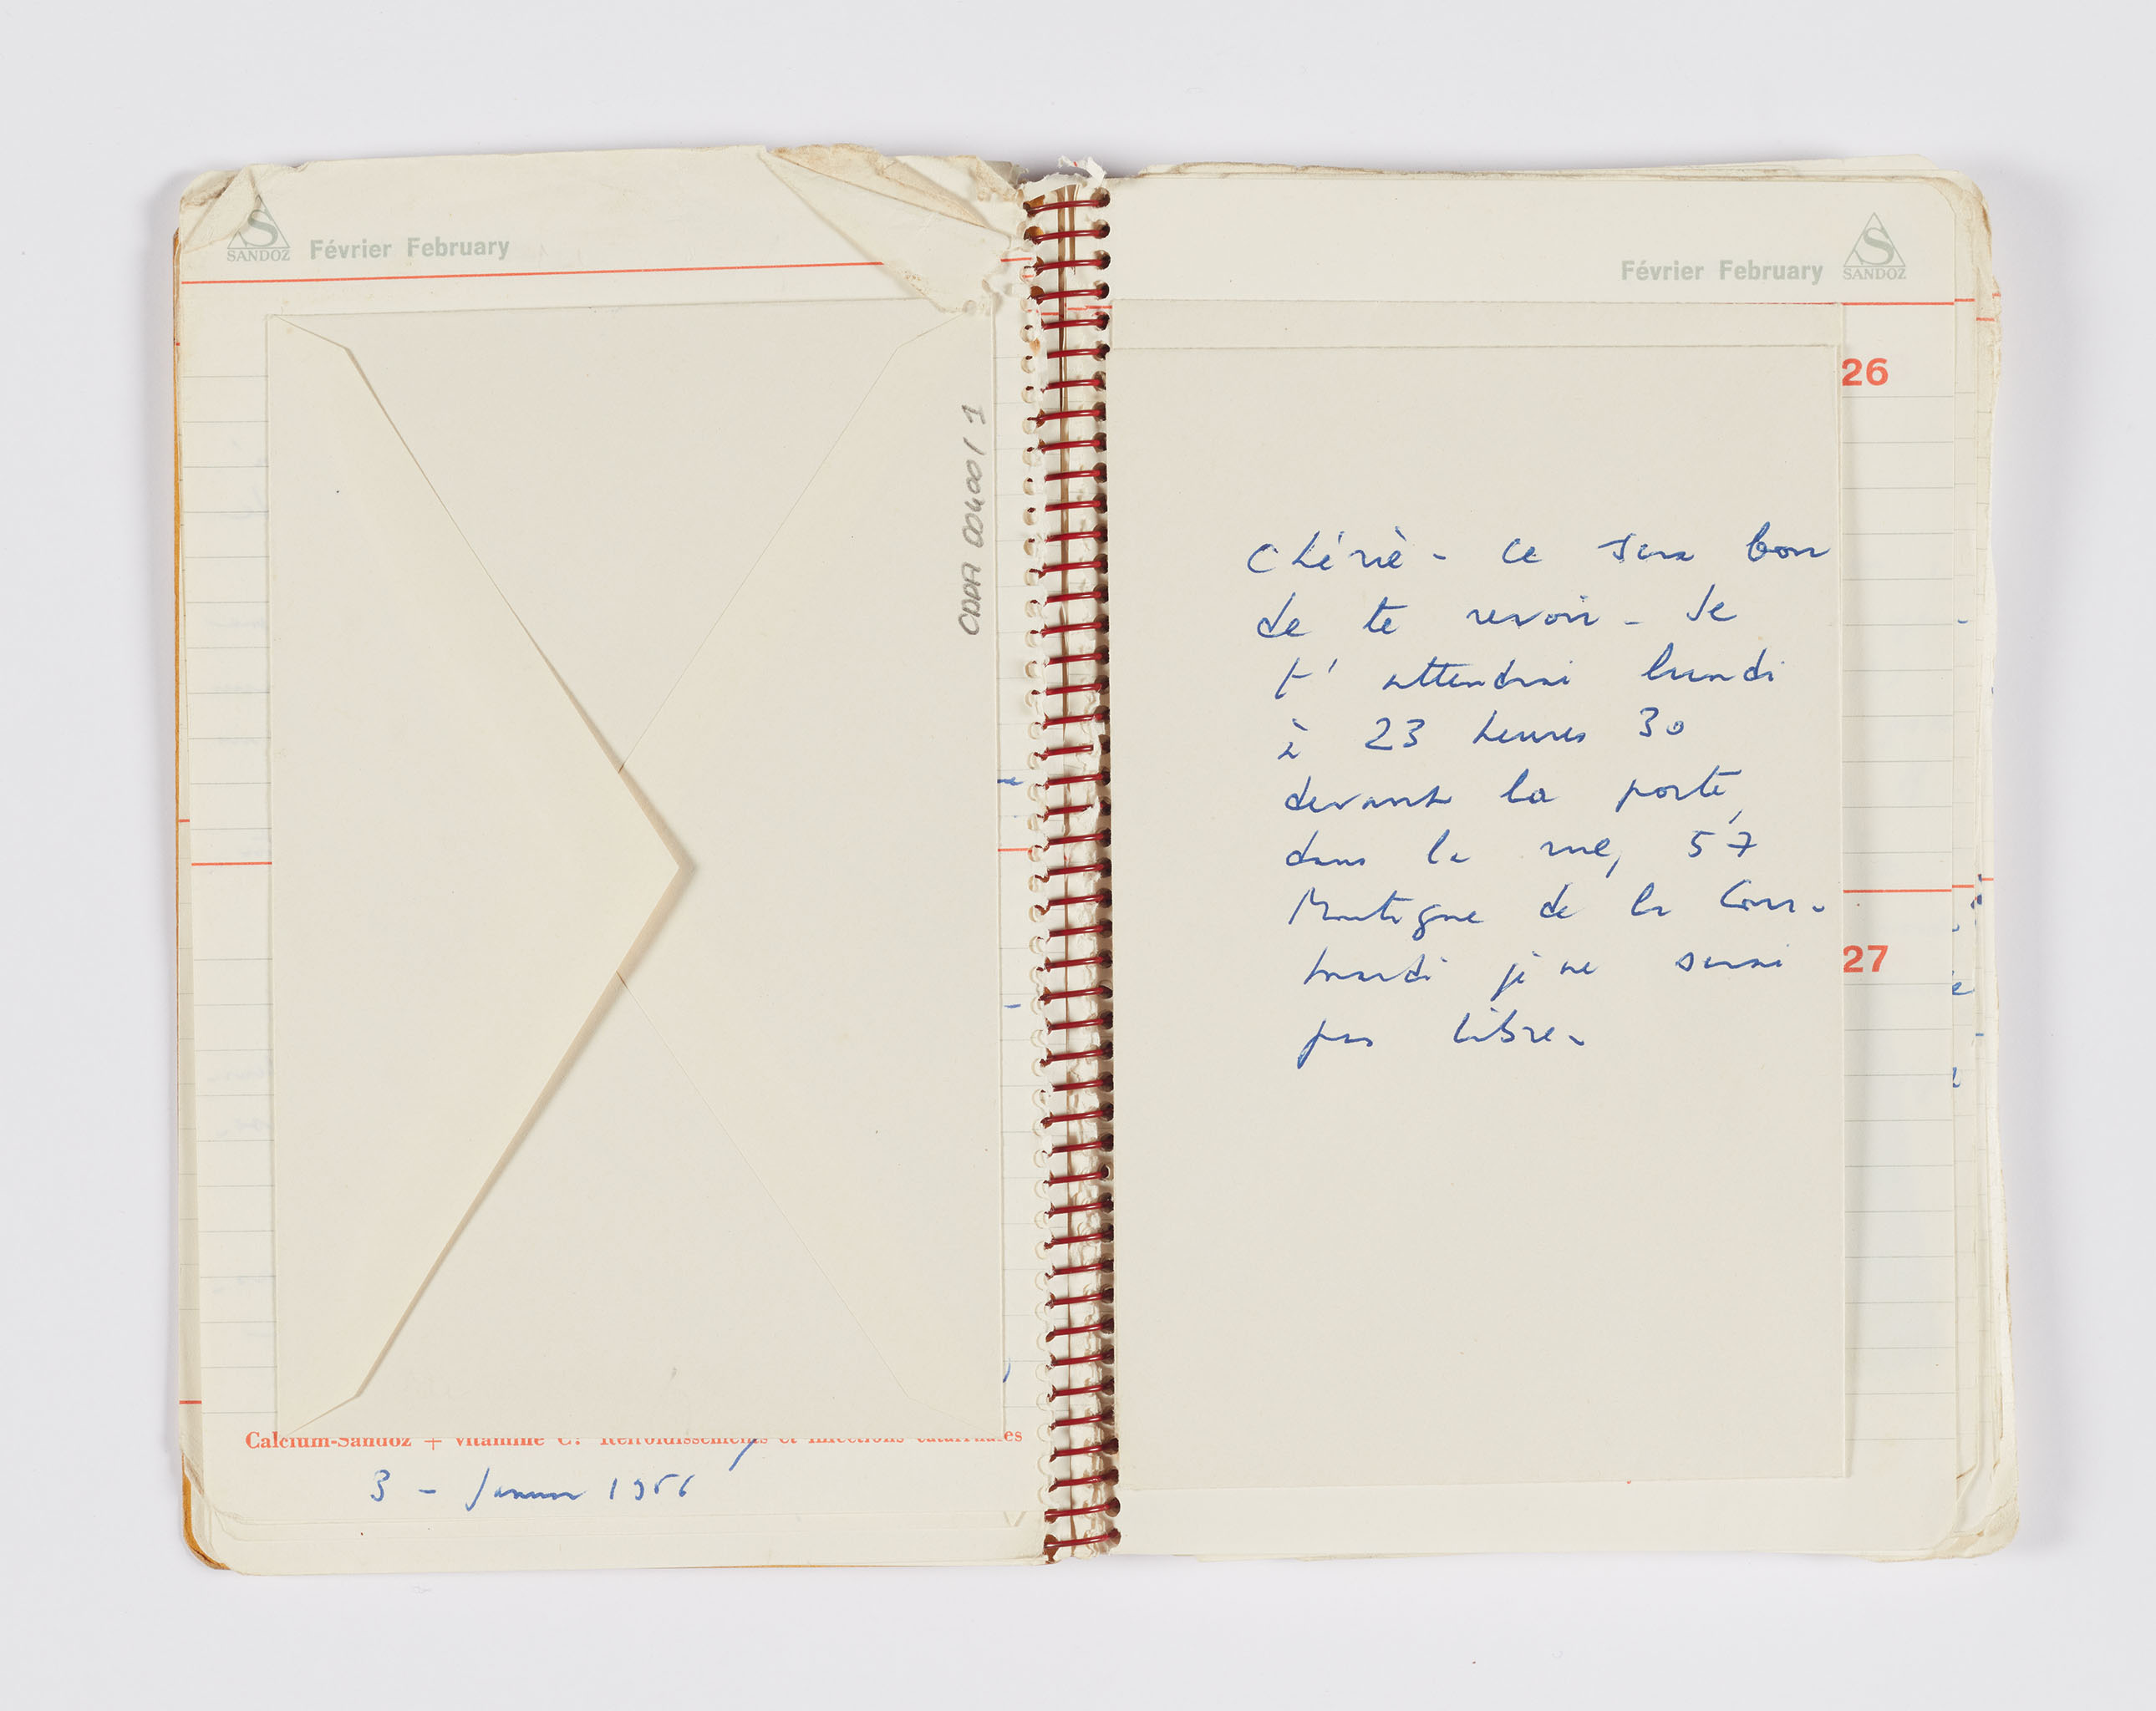 SANDOZ Février February
CDAA 004001 1
Calcium-Sandoz + Vitamine C: Refroidissements et infections catarrhales
3 - Janvier 1966
Février February SANDOZ
26
Chérie - Ce sera bon
de te revoir - Je
t'attendrai lundi
à 23 heures 30
devant la porte,
dans la rue, 57
Montagne de la Cour -
mardi je ne serai
pas libre -
27